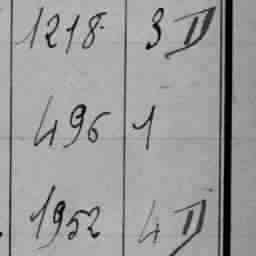 1218 3 II
496 1
1952 4 II